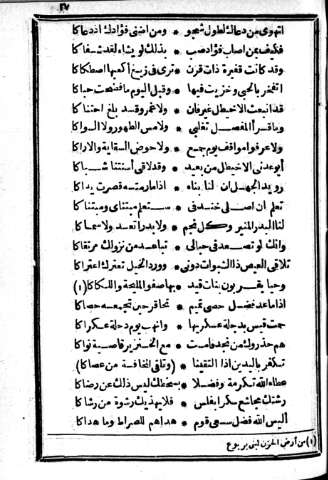 اتهوى من دعاك لطول شجو * ومن اضنى فؤادك اذ دعاكا
فكيف من اصاب فؤاد صب * بذلك لو يشاء لقد شفاكا
وقد كانت قفيرة ذات قرن * ترى فى زيغ أكعبها اصطكاكا
اتفخر بالحبى وخزيت فيها * وقبل اليوم ما فضحت حباكا
قد انبعث الاخيطل غير فان * ولا غمر وقد بلغ احتناكا
وما قرأ المفصل تغلبى * ولا مس الطهور ولا السواكا
ولا عرفوا مواقف يوم جمع * ولا حوض السقاية والاراكا
أبو عدنى الاخيطل من بعيد * وقد لاقى أسنتنا شباكا
رويد الجهل ان لنا بناء * اذا ما رمته قصرت يداكا
تعلم ان أصلى خندفى * ستعلم مبتناى ومبتناكا
لنا البدر المنير وكل نجم * ولا بدرا تعد ولا سماكا
وانك لو تصعد فى جبالى * تباعد من نزولك مرتقاكا
تلاقى العيص ذا الشبوات دونى * وورد الخيل تعترك اعتراكا
وحيا يقربون بنات قيد * بها صفو المليحة واللكاكا (١)
اذا ما عد فضل حصى تميم * تحاقر حين تجمعه حصاكا
حمت قيس بدجلة عسكريها * وانهب يوم دجلة عسكراكا
هم حدروك من نجد فامست * مع الخنزير قاصية نواكا
تكفر باليدين اذا التقينا * (وتلقى الخافة من عصاكا)
عطاء الله تكرمة وفضلا * بسخطك ليس ذلك عن رضاكا
رشتك مجاشع سكرا بفلس * فلا يهنيك رشوة من رشاكا
أليس الله فضل سعى قوم * هداهم للصراط وما هداكا
(١) من أرض الحزن لبنى يربوع